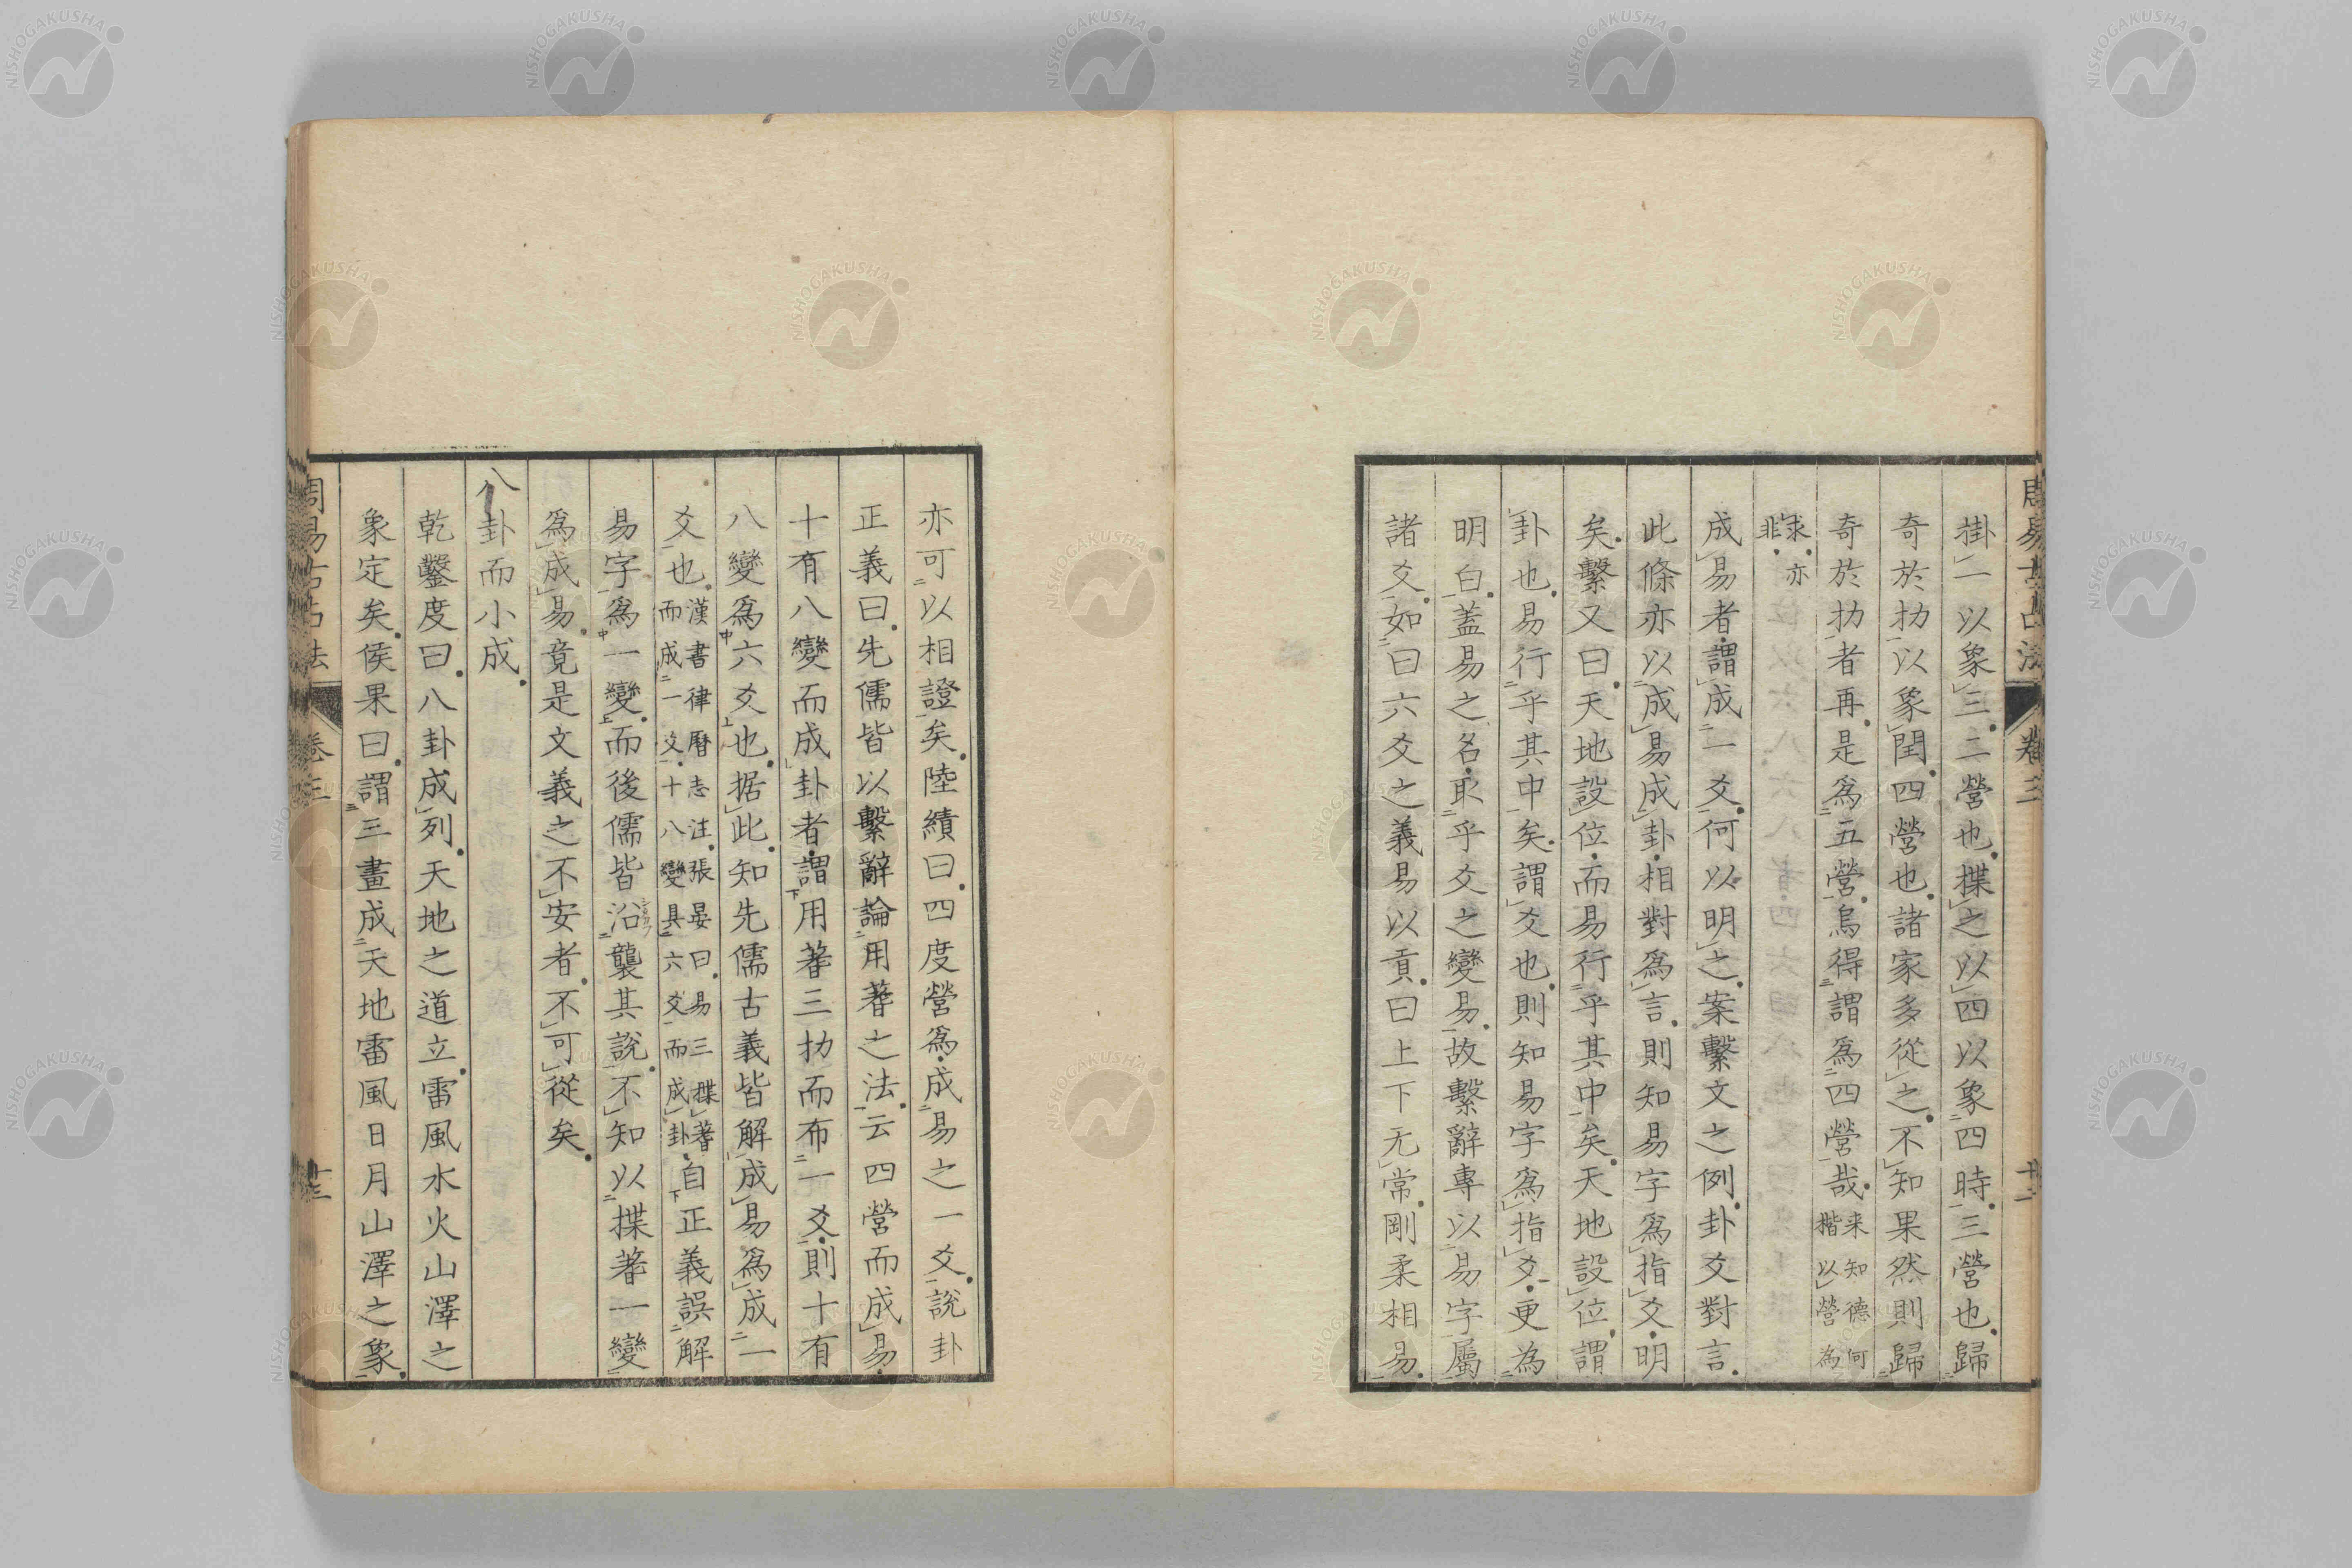 掛一以象三二營也揲之以四以象四時三營也歸
奇於扐以象閏四營也諸家多從之不知果然則歸
奇於扐者再是爲五營烏得謂爲四營哉来知德何楷以營為
求亦非
成易者謂成一爻何以明之案繫文之例卦爻對言
此條亦以成易成卦相對爲言則知易字爲指爻明
矣繫又曰天地設位而易行乎其中矣天地設位謂
卦也易行乎其中矣謂爻也則知易字爲指爻更為
明白蓋易之名取乎爻之變易故繫辭專以易字屬
諸爻如曰六爻之義易以貢曰上下无常剛柔相易
亦可以相證矣陸績曰四度營爲成易之一爻說卦
正義曰先儒皆以繫辭論用蓍之法云四營而成易
十有八變而成卦者謂用蓍三扐而布一爻則十有
八變爲六爻也据此知先儒古義皆解成易爲成一
爻也漢書律曆志注張晏曰易三揲蓍而成一爻十八變具六爻而成卦自正義誤解
易字爲一變而後儒皆沿襲其說不知以揲蓍一變
爲成易竟是文義之不安者不可從矣
八卦而小成
乾鑿度曰八卦成列天地之道立雷風水火山澤之
象定矣侯果曰謂三畫成天地雷風日月山澤之象
周易古占法 卷三 十三
NISHOGAKUSHA